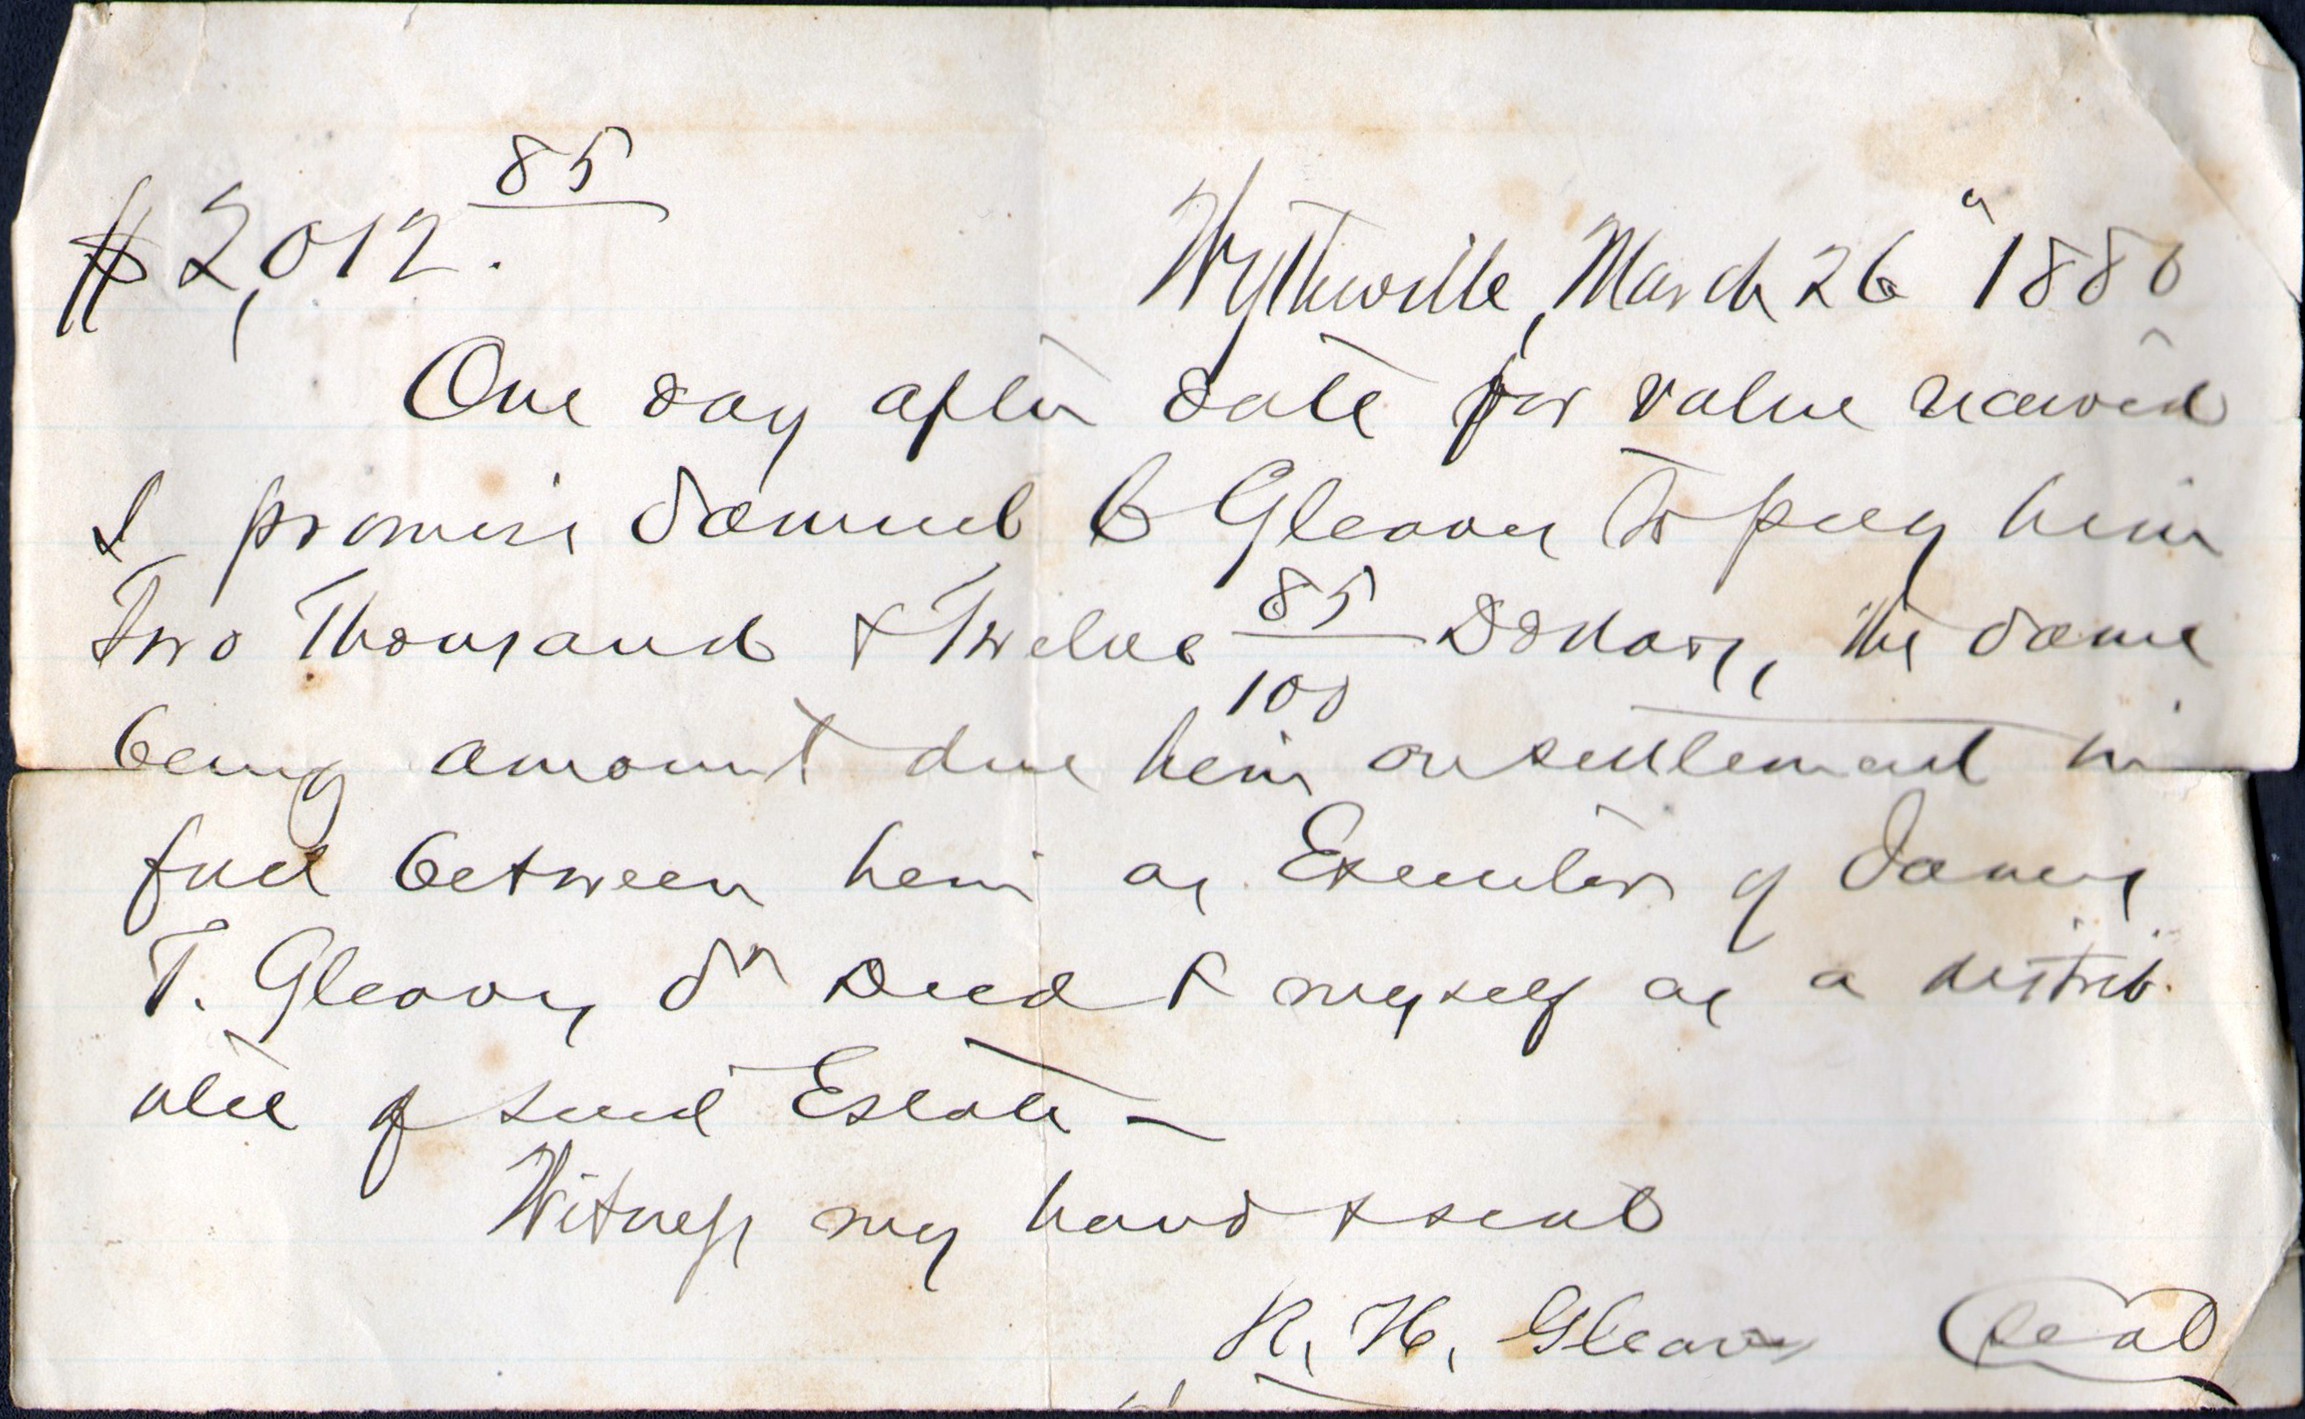 $2,012.85
Wytheville, March 26" 1880
One day after date for value received
I promise Samuel B Gleaves to pay him
Two Thousand & Twelve 85/100 Dollars, the same
being amount due him on settlement in
full between him as Executor of James
T. Gleaves Sr Decd & myself as a distrib
utee of said Estate –
Witness my hand & seal
R. H. Gleaves Seal